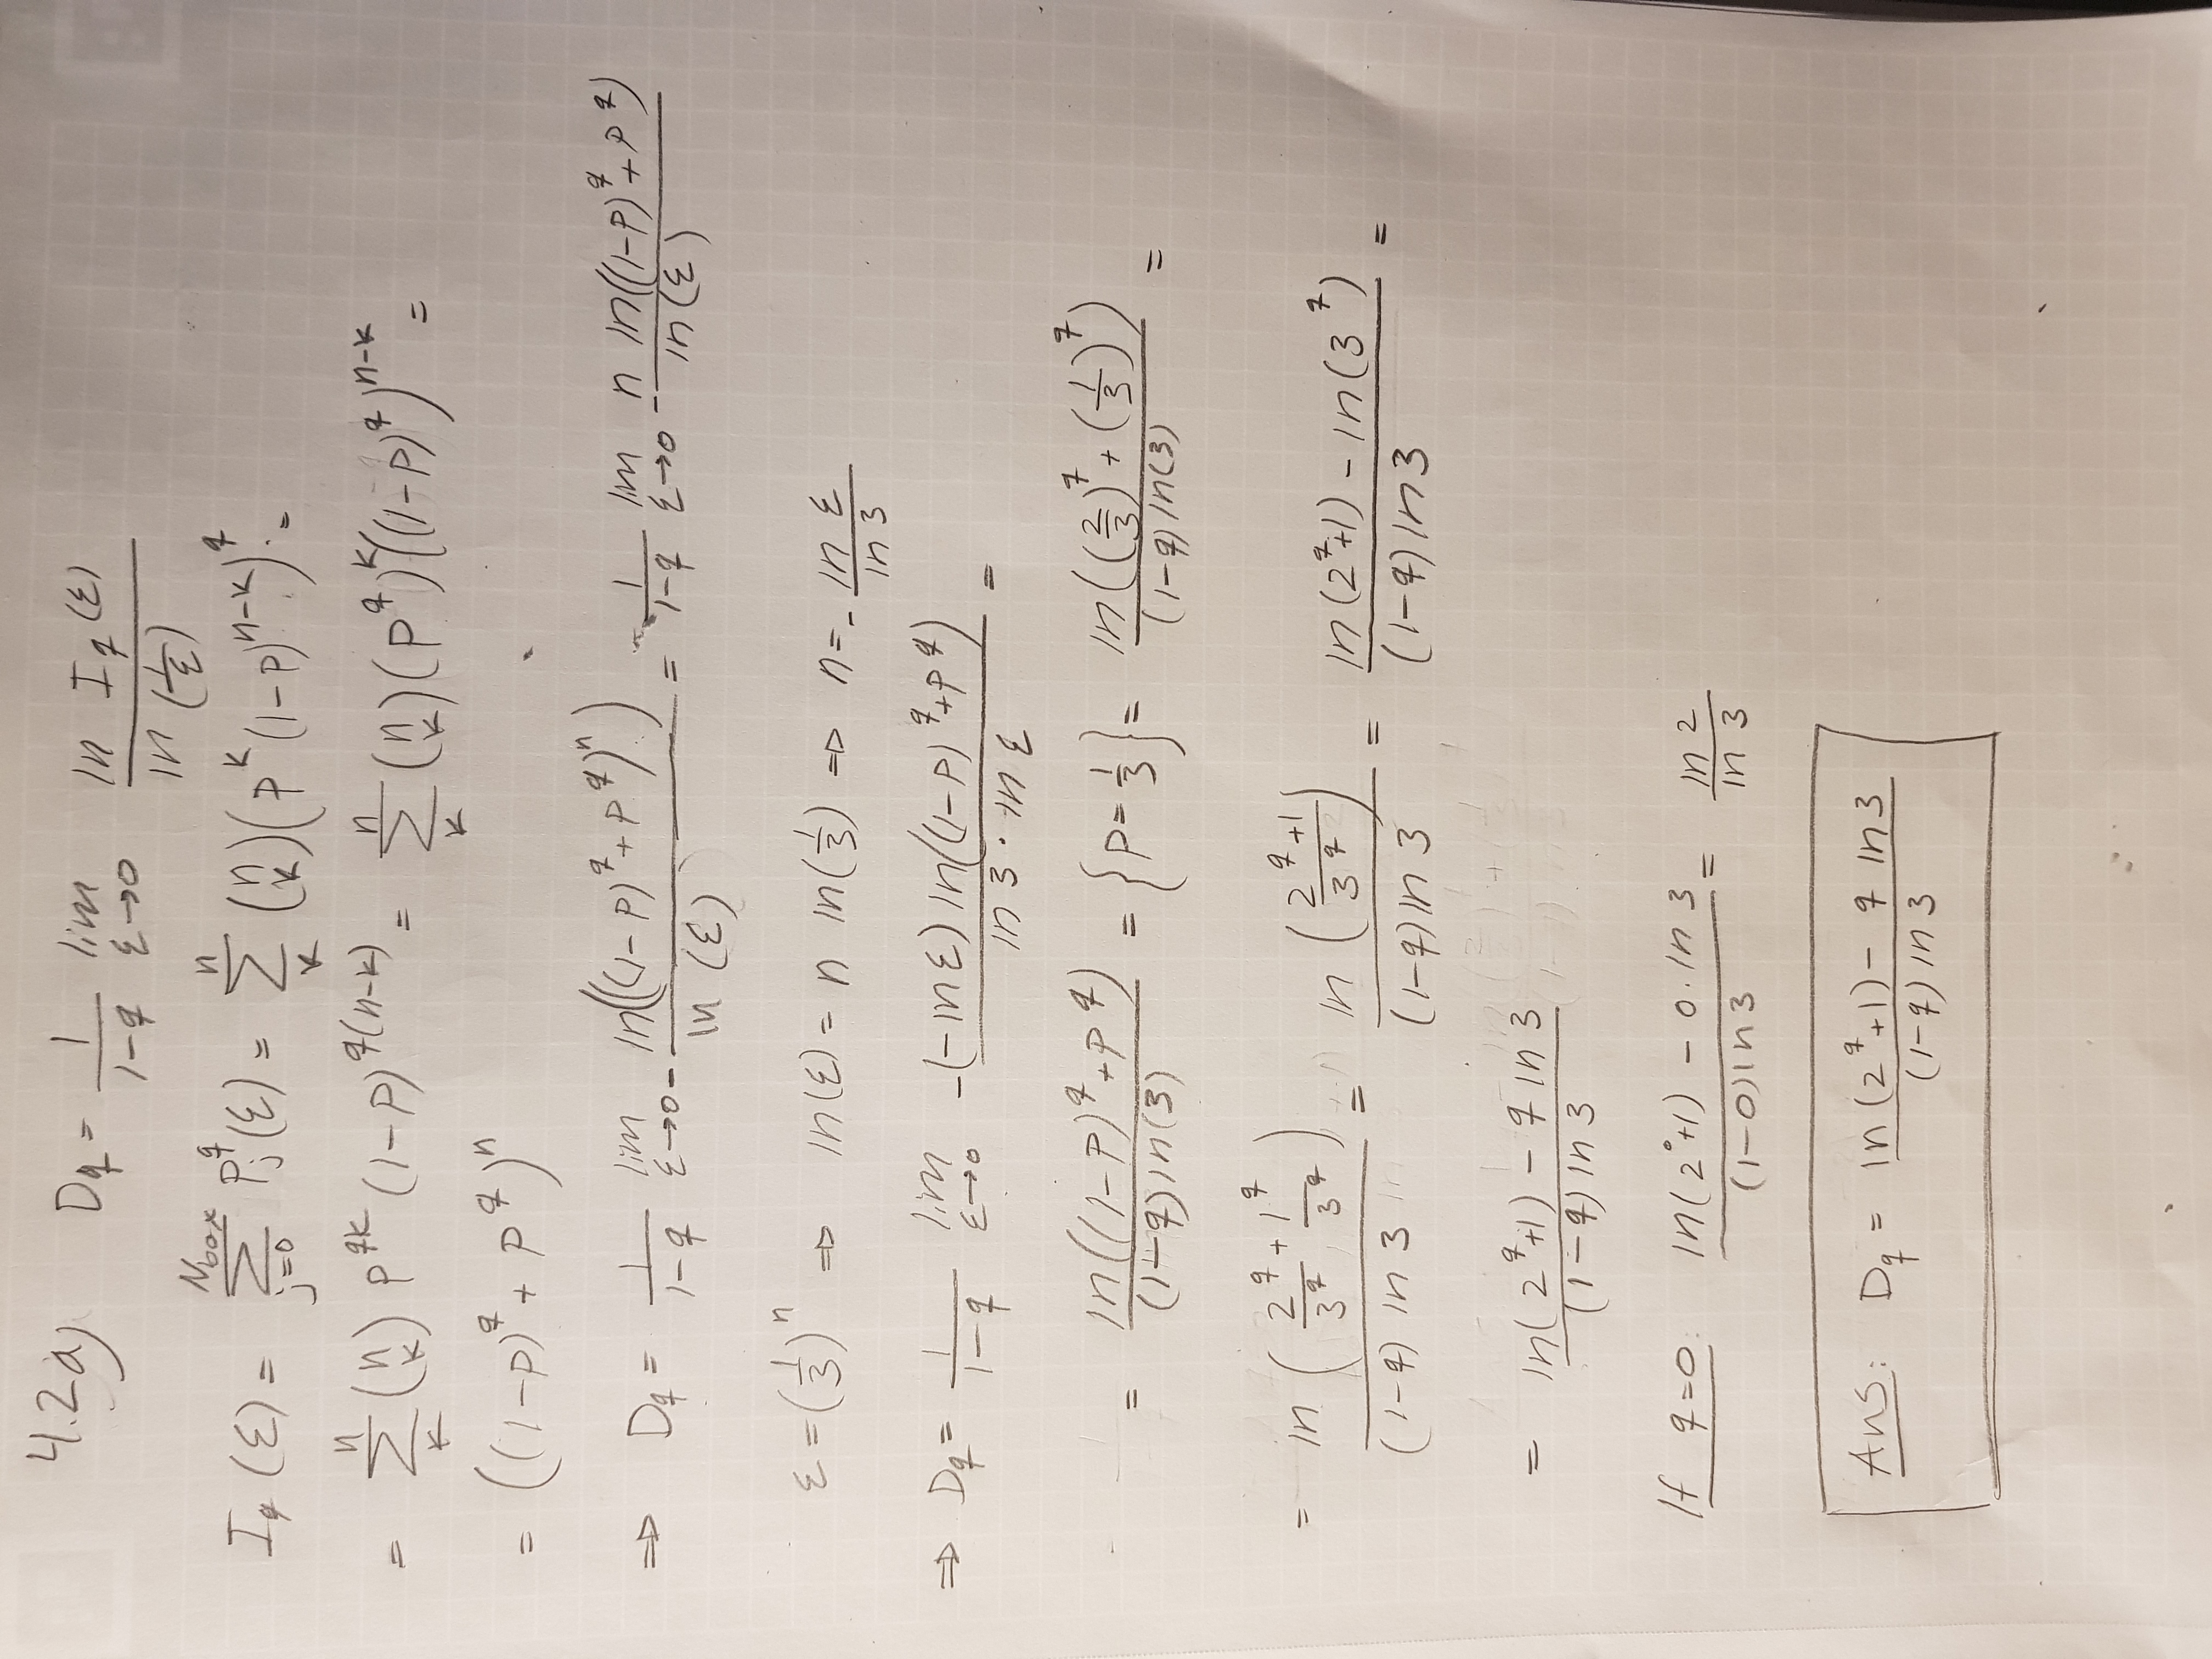 4.2a) D_q = 1/(1-q) lim_{ε→0} ln I_q(ε) / ln(1/ε)
I_q(ε) = Σ_{j=0}^{Nbox} P_j^q(ε) = Σ_k^n (n k)(p^k (1-p)^{n-k})^q =
= Σ_k^n (n k) p^{qk} (1-p)^{q(n-k)} = Σ_k^n (n k)(p^q)^k((1-p)^q)^{n-k} =
= ((1-p)^q + p^q)^n
⇒ D_q = 1/(1-q) lim_{ε→0} - ln(((1-p)^q + p^q)^n) / ln(ε) = 1/(1-q) lim_{ε→0} - n ln((1-p)^q + p^q) / ln(ε)
ε = (1/3)^n ⇒ ln(ε) = n ln(1/3) ⇒ n = - ln ε / ln 3
⇒ D_q = 1/(1-q) lim_{ε→0} - (-ln ε) ln((1-p)^q + p^q) / ln 3 · ln ε =
= ln((1-p)^q + p^q) / (1-q) ln(3) = {p = 1/3} = ln((2/3)^q + (1/3)^q) / (1-q) ln(3) =
= ln(2^q/3^q + 1^q/3^q) / (1-q) ln 3 = ln((2^q + 1)/3^q) / (1-q) ln 3 = ln(2^q + 1) - ln(3^q) / (1-q) ln 3 =
= ln(2^q + 1) - q ln 3 / (1-q) ln 3
If q=0: ln(2^0 + 1) - 0 · ln 3 / (1-0) ln 3 = ln 2 / ln 3
Ans: D_q = ln(2^q + 1) - q ln 3 / (1-q) ln 3